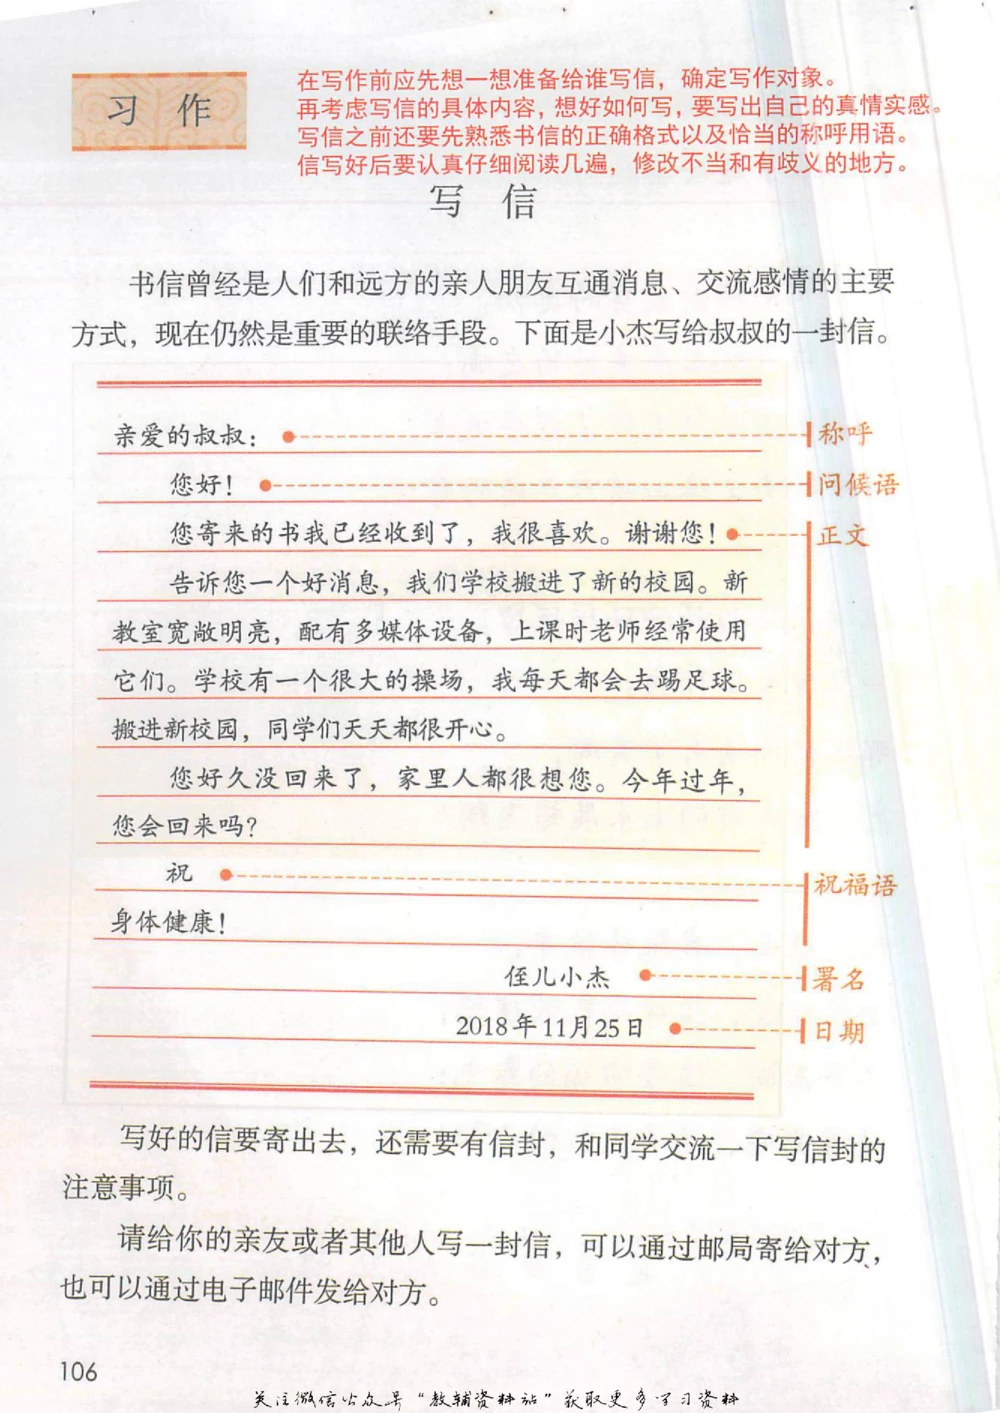 习 作
在写作前应先想一想准备给谁写信，确定写作对象。
再考虑写信的具体内容，想好如何写，要写出自己的真情实感。
写信之前还要先熟悉书信的正确格式以及恰当的称呼用语。
信写好后要认真仔细阅读几遍，修改不当和有歧义的地方。
写 信
书信曾经是人们和远方的亲人朋友互通消息、交流感情的主要
方式，现在仍然是重要的联络手段。下面是小杰写给叔叔的一封信。
亲爱的叔叔： 称呼
您好！ 问候语
您寄来的书我已经收到了，我很喜欢。谢谢您！ 正文
告诉您一个好消息，我们学校搬进了新的校园。新
教室宽敞明亮，配有多媒体设备，上课时老师经常使用
它们。学校有一个很大的操场，我每天都会去踢足球。
搬进新校园，同学们天天都很开心。
您好久没回来了，家里人都很想您。今年过年，
您会回来吗？
祝 祝福语
身体健康！
侄儿小杰 署名
2018年11月25日 日期
写好的信要寄出去，还需要有信封，和同学交流一下写信封的
注意事项。
请给你的亲友或者其他人写一封信，可以通过邮局寄给对方，
也可以通过电子邮件发给对方。
106
关注微信公众号“教辅资料站”获取更多学习资料